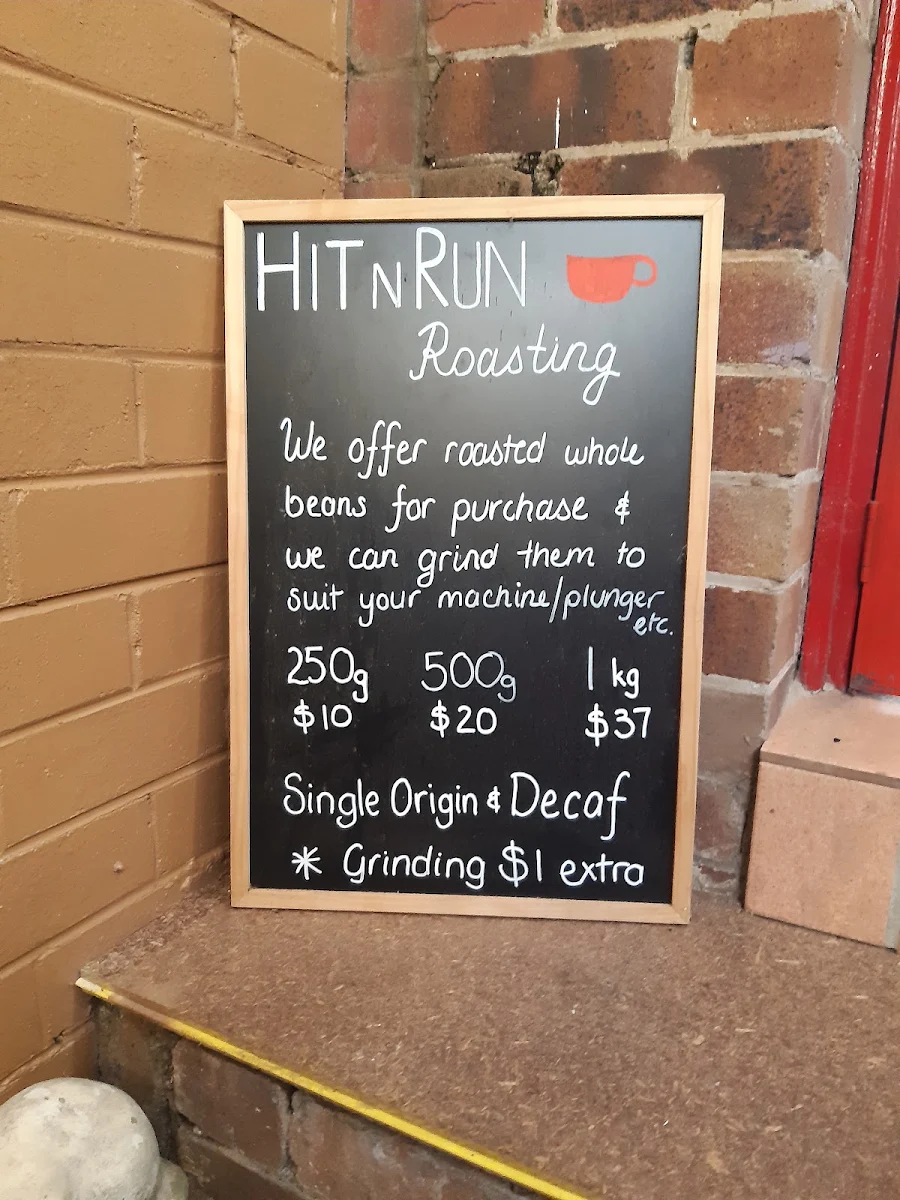 HIT N RUN
Roasting
We offer roasted whole
beans for purchase &
we can grind them to
suit your machine/plunger
etc.
250g 500g 1 kg
$10 $20 $37
Single Origin & Decaf
* Grinding $1 extra